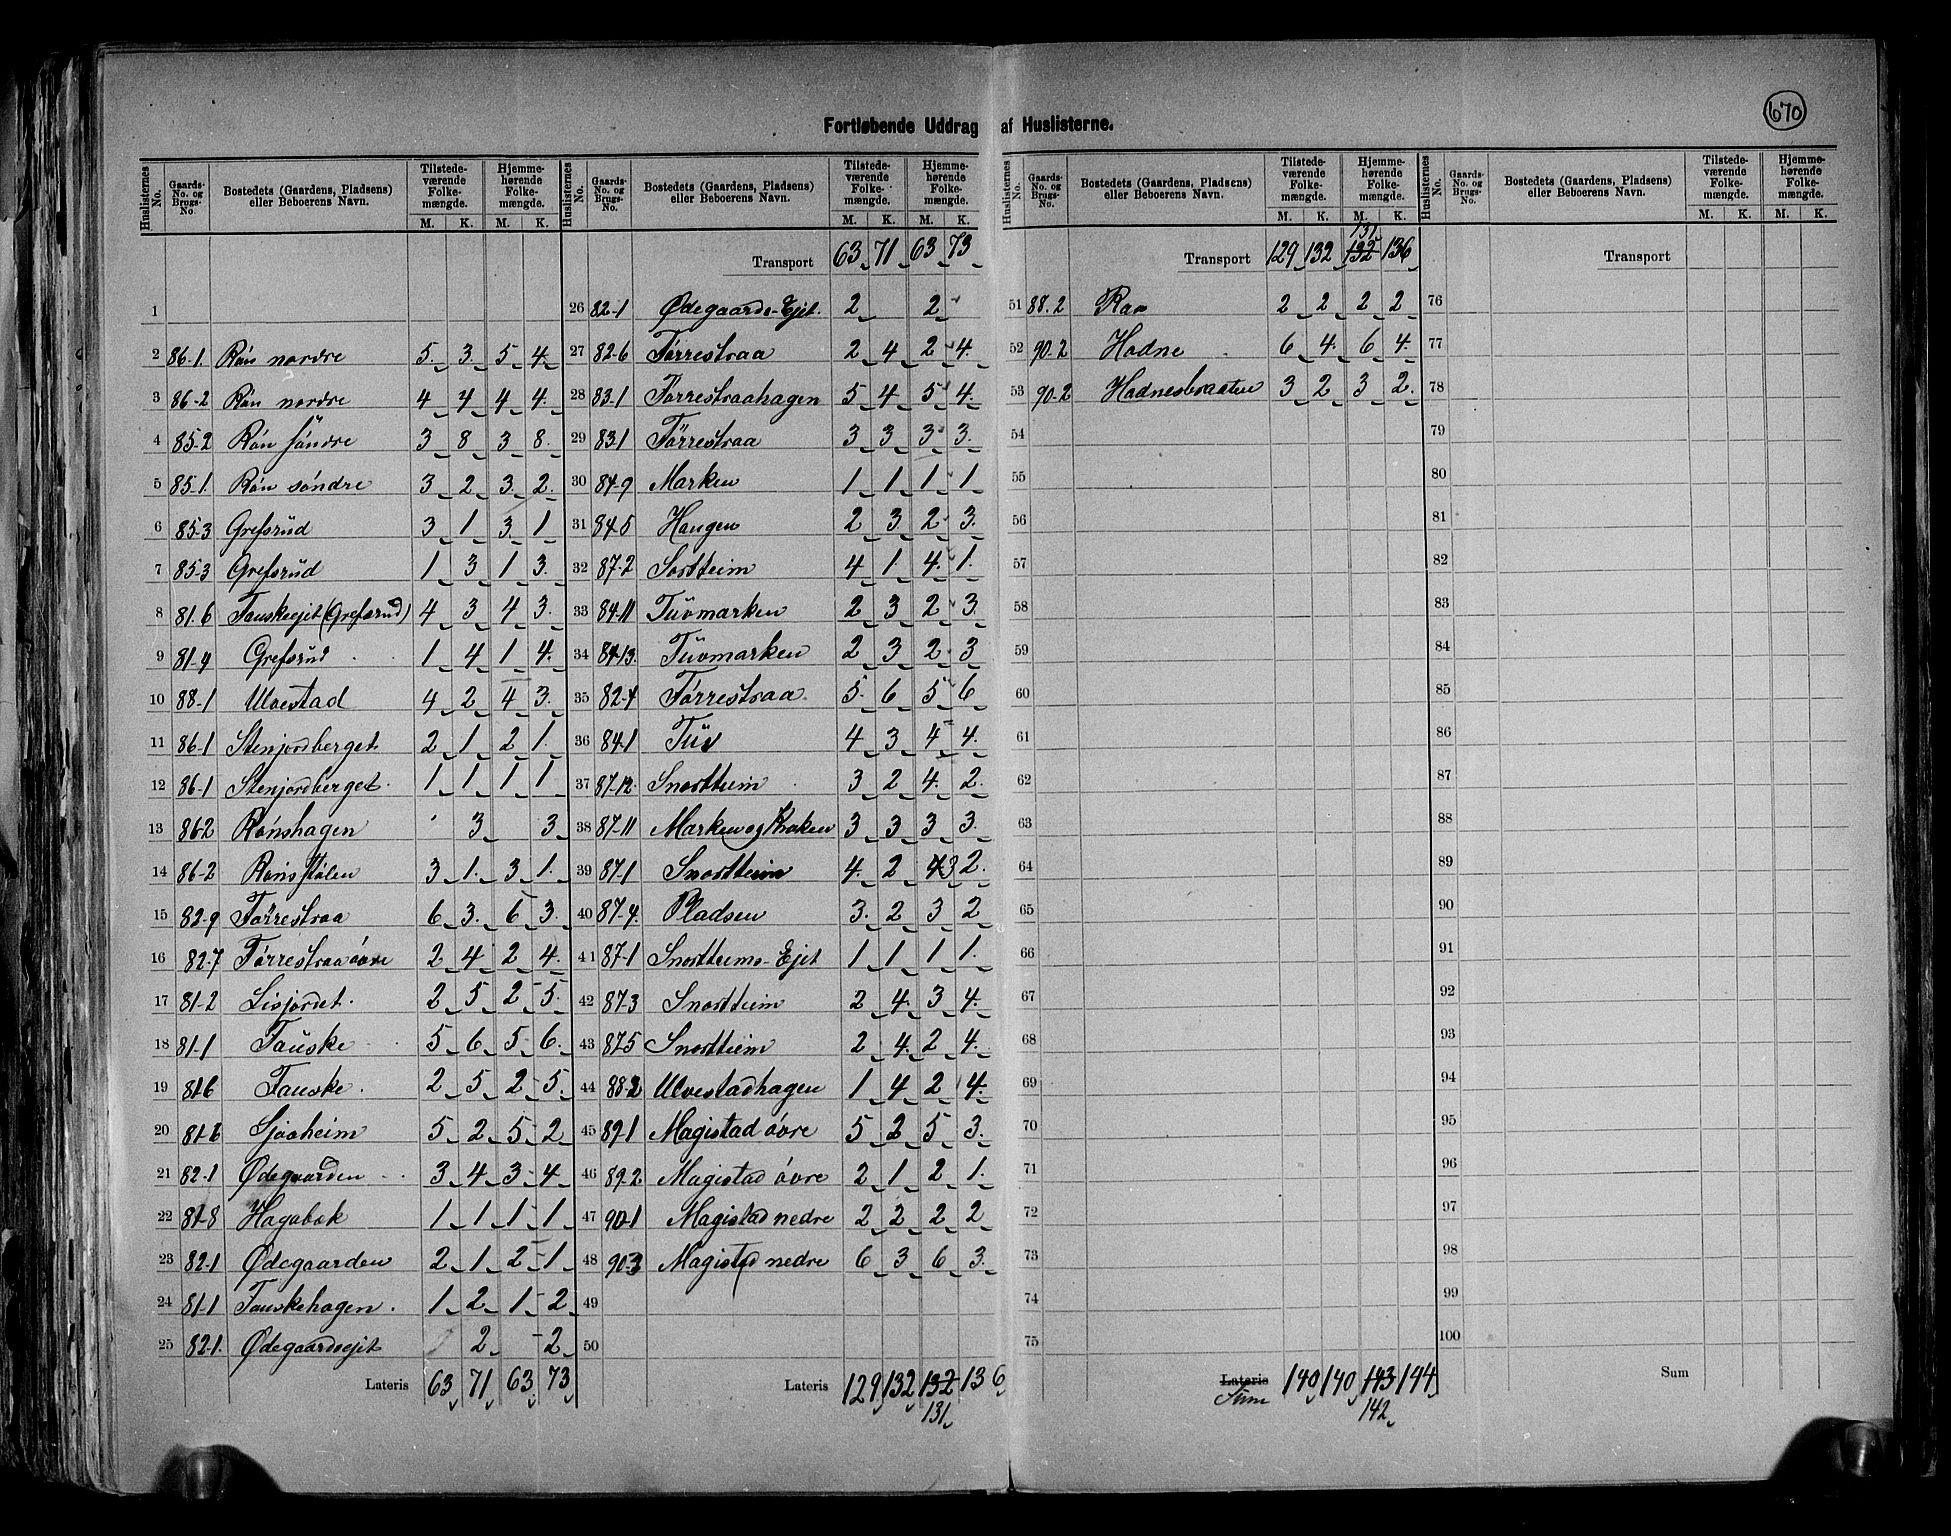 670
Fortløbende Uddrag af Huslisterne.
Huslisternes No. | Gaards-No. og Brugs-No. | Bostedets (Gaardens, Pladsens) eller Beboerens Navn. | Tilstedeværende Folkemængde. M. K. | Hjemmehørende Folkemængde. M. K.
1
2 86-1. Røn nordre 5 3 5 4
3 86-2 Røn nordre 4 4 4 4
4 85-2 Røn søndre 3 8 3 8
5 85-1. Røn søndre 3 2 3 2
6 85-3 Grefsrud 3 1 3 1
7 85-3 Grefsrud 1 3 1 3
8 81-6 Fauskeejet (Grefsrud) 4 3 4 3
9 81-9 Grefsrud 1 4 1 4
10 88-1 Ulvestad 4 2 4 3
11 86-1 Stenjordberget 2 1 2 1
12 86-1 Stenjordberget 1 1 1 1
13 86-2 Rønshagen 3 3
14 86-2 Rønsstølen 3 1 3 1
15 82-9 Førrestraa 6 3 6 3
16 82-7 Førrestraa øvre 2 4 2 4
17 81-2 Lisjordet 2 5 2 5
18 81-1 Fauske 5 6 5 6
19 81-6 Fauske 2 5 2 5
20 81-6 Sjoaheim 5 2 5 2
21 82-1 Ødegaarden 3 4 3 4
22 81-8 Hagabak 1 1 1 1
23 82-1 Ødegaarden 2 1 2 1
24 81-1 Fauskehagen 1 2 1 2
25 82-1. Ødegaardsejet 2 2
Lateris 63 71 63 73
Huslisternes No. | Gaards-No. og Brugs-No. | Bostedets (Gaardens, Pladsens) eller Beboerens Navn. | Tilstedeværende Folkemængde. M. K. | Hjemmehørende Folkemængde. M. K.
Transport 63 71 63 73
26 82-1 Ødegaards-Ejet. 2 2
27 82-6 Førrestraa 2 4 2 4
28 83-1 Førrestraahagen 5 4 5 4
29 83-1 Førrestraa 3 3 3 3
30 84-9 Marken 1 1 1 1
31 84-5 Haugen 2 3 2 3
32 87-2 Sortteim 4 1 4 1
33 84-11 Tuvmarken 2 3 2 3
34 84-13. Tuvmarken 2 3 2 3
35 82-4 Førrestraa 5 6 5 6
36 84-1 Tuv 4 3 4 4
37 87-12. Snortteim 3 2 4 2
38 87-11 Marken og Kroken 3 3 3 3
39 87-1 Snortteim 4 2 4 3 2
40 87-4. Pladsen 3 2 3 2
41 87-1 Snortteims-Ejet 1 1 1 1
42 87-3 Snortteim 2 4 3 4
43 87-5 Snortteim 2 4 2 4
44 88-2 Ulvestadhagen 1 4 2 4
45 89-1 Magistad øvre 5 2 5 3
46 89-2 Magistad øvre 2 1 2 1
47 90-1 Magistad nedre 2 2 2 2
48 90-3 Magistad nedre 6 3 6 3
49
50
Lateris 129 132 132 136
131
Huslisternes No. | Gaards-No. og Brugs-No. | Bostedets (Gaardens, Pladsens) eller Beboerens Navn. | Tilstedeværende Folkemængde. M. K. | Hjemmehørende Folkemængde. M. K.
131
Transport 129 132 132 136
51 88-2 Raa 2 2 2 2
52 90-2 Hadne 6 4 6 4
53 90-2 Hadnesbraaten 3 2 3 2
54
55
56
57
58
59
60
61
62
63
64
65
66
67
68
69
70
71
72
73
74
75
Lateris Sum 140 140 143 144
142
Huslisternes No. | Gaards-No. og Brugs-No. | Bostedets (Gaardens, Pladsens) eller Beboerens Navn. | Tilstedeværende Folkemængde. M. K. | Hjemmehørende Folkemængde. M. K.
Transport
76
77
78
79
80
81
82
83
84
85
86
87
88
89
90
91
92
93
94
95
96
97
98
99
100
Sum